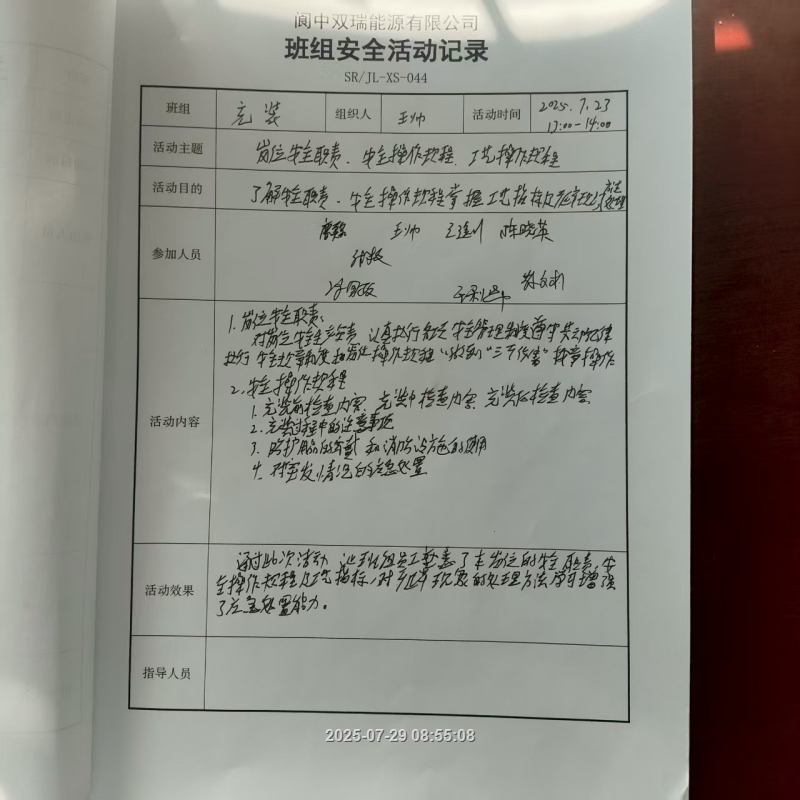 阆中双瑞能源有限公司
班组安全活动记录
SR/JL-XS-044
班组 充装 组织人 王帅 活动时间 2025.7.23
13:00-14:00
活动主题 岗位安全职责、安全操作规程、工艺操作规程
活动目的 了解安全职责、安全操作规程掌握工艺指标及异常现象应急处理
参加人员 王帅 陈晓英
活动内容
1.岗位安全职责:
对岗位安全生产负责 认真执行各项安全管理制度遵守劳动纪律
执行安全规章制度和岗位操作规程"做到"三不伤害" 操作
2.安全操作规程
1.充装前检查内容、充装中检查内容、充装后检查内容
2.充装过程中的注意事项
3.防护用品的穿戴和消防设施的使用
4.对突发情况的应急处置
活动效果
通过此次活动 让班组员工熟悉了本岗位的安全职责,安
全操作规程及工艺指标,对异常现象的处理方法 增强
了应急处置能力。
指导人员
2025-07-29 08:55:08